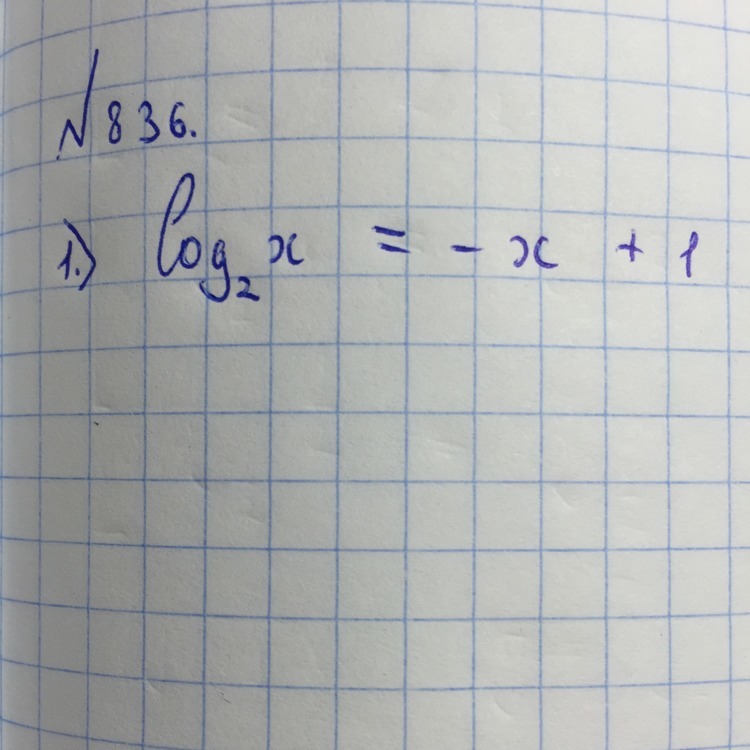 №836.
1.) log₂x = -x + 1